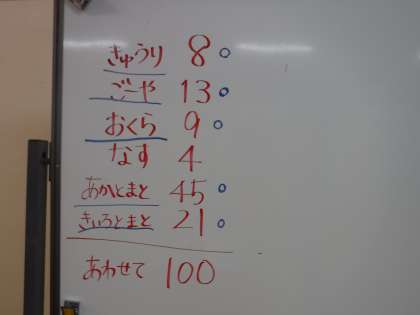 きゅうり 8 o
ごーや 13 o
おくら 9 o
なす 4
あかとまと 45 o
きいろとまと 21 o
あわせて 100